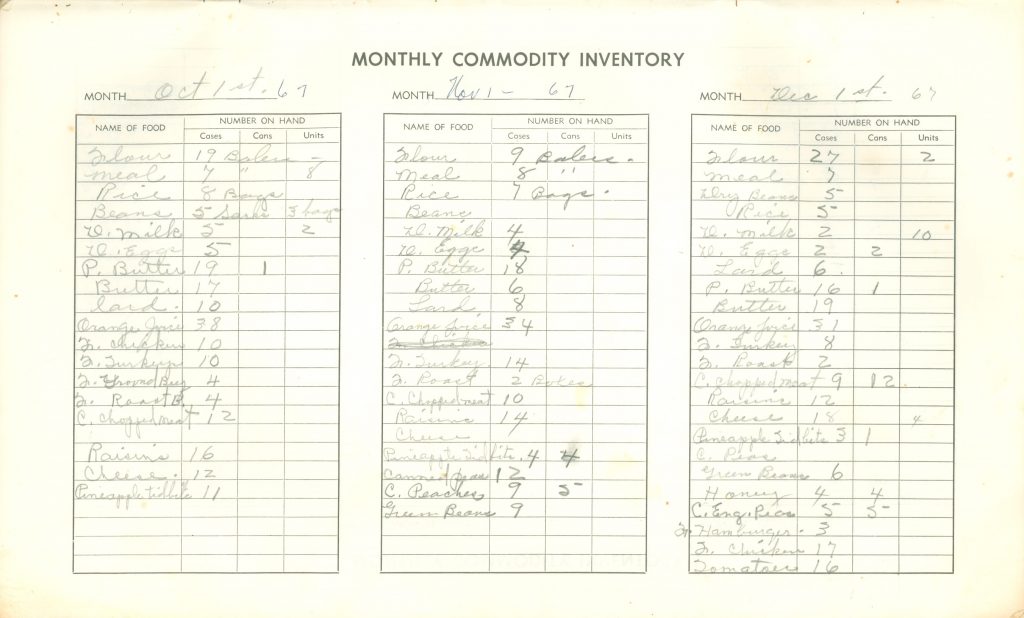 MONTHLY COMMODITY INVENTORY
MONTH Oct 1st. 67
NAME OF FOOD NUMBER ON HAND
Cases Cans Units
Flour 19 Balers -
Meal 7 " 8
Rice 8 Bags
Beans 5 Sacks 3 bags
D. Milk 5 2
D. Eggs 5
P. Butter 19 1
Butter 17
lard. 10
Orange Juice 38
Fr. Chicken 10
Fr. Turkeys 10
Fr. Ground Beef 4
Fr. Roast B. 4
C. Chopped meat 12
Raisins 16
Cheese. 12
Pineapple tidbits 11
MONTH Nov 1 - 67
NAME OF FOOD NUMBER ON HAND
Cases Cans Units
Flour 9 Balers.
Meal 8 "
Rice 7 Bags.
Beans
D. Milk 4
D. Eggs 4
P. Butter 18
Butter 6
Lard 8
Orange Juice 34
Fr. Chicken
Fr. Turkey 14
Fr. Roast 2 Boxes
C. Chopped meat 10
Raisins 14
Cheese
Pineapple Tidbits. 4 4
Canned 12
C. Peaches 9 5
Green Beans 9
MONTH Dec 1st. 67
NAME OF FOOD NUMBER ON HAND
Cases Cans Units
Flour 27 2
Meal 7
Dry Beans 5
Rice 5
D. Milk 2 10
D. Eggs 2 2
Lard 6
P. Butter 16 1
Butter 19
Orange Juice 31
Fr. Turkey 8
Fr. Roast 2
C. Chopped meat 9 12
Raisins 12
Cheese 18 4
Pineapple Tidbits 3 1
C. Peas
Green Beans 6
Honey 4 4
C. Eng. Peas 5 5
Fr. Hamburger. 3
Fr. Chicken 17
Tomatoes 16